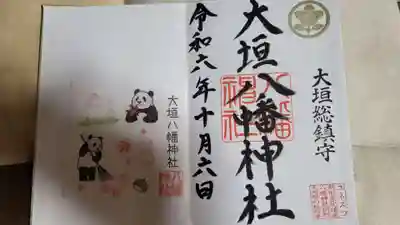 大垣総鎮守
大垣八幡神社
八幡
神社
令和六年十月六日
大垣八幡神社